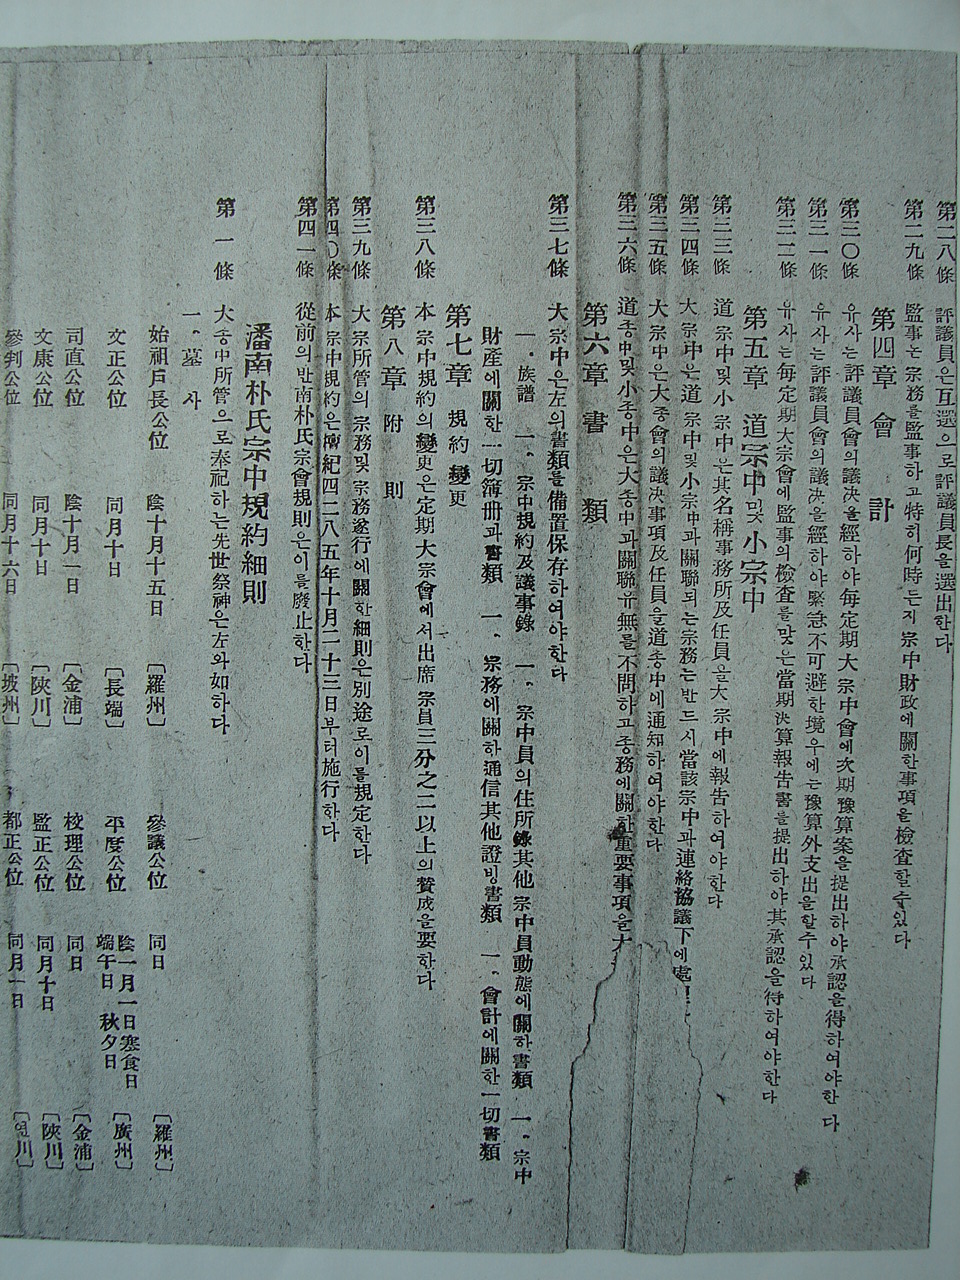 第二八條 評議員은互選으로評議員長을選出한다
第二九條 監事는宗務를監事하고特히何時든지宗中財政에關한事項을檢査할수있다
第四章 會計
第三〇條 유사는評議員會의議决을經하야每定期大宗中會에次期豫算案을提出하야承認을得하여야한다
第三一條 유사는評議員會의議决을經하야緊急不可避한境우에는豫算外支出을할수있다
第三二條 유사는每定期大宗會에監事의檢査를맞은當期決算報告書를提出하야其承認을得하여야한다
第五章 道宗中및小宗中
第三三條 道宗中및小宗中은其名稱事務所及任員을大宗中에報告하여야한다
第三四條 大宗中은道宗中및小宗中과關聯되는宗務는반드시當該宗中과連絡協議下에處理
第三五條 大宗中은大宗會의議決事項及任員을道宗中에通知하여야한다
第三六條 道宗中및小宗中은大宗中과關聯유無를不問하고宗務에關한重要事項을大
第六章 書類
第三七條 大宗中은左의書類를備置保存하여야한다
一、族譜 一、宗中規約及議事錄 一、宗中員의住所錄其他宗中員動態에關하書類 一、宗中
財産에關한一切簿册과書類 一、宗務에關하通信其他證빙書類 一、會計에關한一切書類
第七章 規約變更
第三八條 本宗中規約의變更은定期大宗會에서出席宗員三分之二以上의贊成을要한다
第八章 附則
第三九條 大宗所管의宗務및宗務遂行에關한細則은別途로이를規定한다
第四〇條 本宗中規約은檀紀四二八五年十月二十三日부터施行한다
第四一條 從前의반南朴氏宗會規則은이를廢止한다
潘南朴氏宗中規約細則
第一條 大宗中所管으로奉祀하는先世祭神은左와如하다
一、墓사
始祖戶長公位 陰十月十五日 〔羅州〕 參議公位 同日 〔羅州〕
文正公位 同月十日 〔長端〕 平度公位 陰一月一日寒食日端午日 秋夕日 〔廣州〕
司直公位 陰十月一日 〔金浦〕 校理公位 同日 〔金浦〕
文康公位 同月十日 〔陜川〕 監正公位 同月十日 〔陜川〕
參判公位 同月十六日 〔坡州〕 都正公位 同月一日 〔연川〕